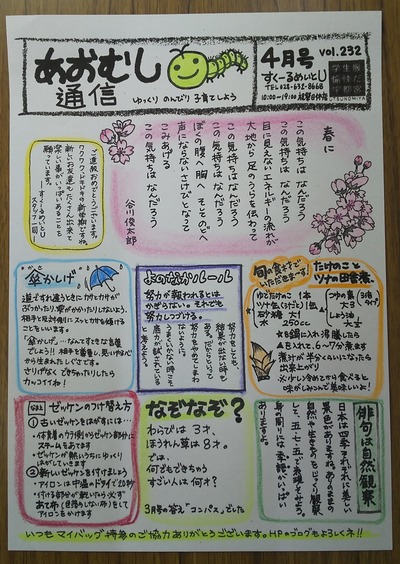 あおむし
通信
ゆっくり のんびり 子育てしよう
4月号 vol.232
すくーるめいとU
TEL 028-632-8668
10:00〜19:00
学生服
愉快だ
宇都宮
UTSUNOMIYA
春に
この気持ちは なんだろう
この気持ちは なんだろう
目に見えないエネルギーの流れが
大地から足のうらを伝わって
この気持ちは なんだろう
ぼくの腹へ 胸へ そしてのどへ
声にならないさけびとなって
こみあげる
この気持ちは なんだろう
谷川俊太郎
ご進級おめでとうございます。
ワクワク、ドキドキの新学期ですね。
新しいお友達もたくさん出来て
楽しい事がいっぱいあることを
願っています。
すくーるめいと
スタッフ一同
傘かしげ
道ですれ違うときにカサとカサが
ぶつかったり、雫がかかったりしないよう、
相手と反対側にスッとカサを傾ける
ことをいいます。
「傘かしげ」…なんてすてきな言葉
でしょう!! 相手を尊重し、思いやる心
から生まれたしぐさです。
さりげなく できちゃったりしたら
カッコイイネ!
よのなかルール
努力が報われるとは
かぎらない。それでも
努力しつづける。
努力をしても、
結果が出ない時が
ある。だからといって
努力をやめてしまわ
ない。ダメな時こそ
底力が試されている
と考えよう。
旬の食材でいただきまーす!
たけのこと
ツナの田舎煮
ゆでたけのこ 1本
ツナ缶(汁ごと) 1缶
砂糖 大1
水 250cc
しょう油
大1
★を鍋に入れ沸騰したら
▲を入れて、6〜7分煮ます
煮汁が半分くらいになったら
出来上がり
☆少し冷めてから食べると
味がしみこんで美味しいよ!
ゼッケンのつけ替え方
① 古いゼッケンをはがすには…
・体育着のウラ側からゼッケン部分に
スチームをあてます
・ゼッケンが熱いうちにゆっくり
はがしていきます
② 新しいゼッケンを付けましょう
・アイロンは中温のドライで20秒
・付ける部分が動いたら必ず
あて布(色移りしない物)をして
アイロンをかけます
なぞなぞ?
わらびは 3才、
ほうれん草は 8才。
では、
何でもできちゃう
すごい人は 何才?
3月号の答え「コンパス」でした
俳句は自然観察
日本は四季それぞれに美しい
景色がありますね。ありのままの
自然や生きものをじっくり観察
し、五・七・五で表現してみよう。
身の周りには季語がいっぱい
ありますよ。
いつもマイバッグ持参のご協力ありがとうございます。HPのブログもよろしくネ!!